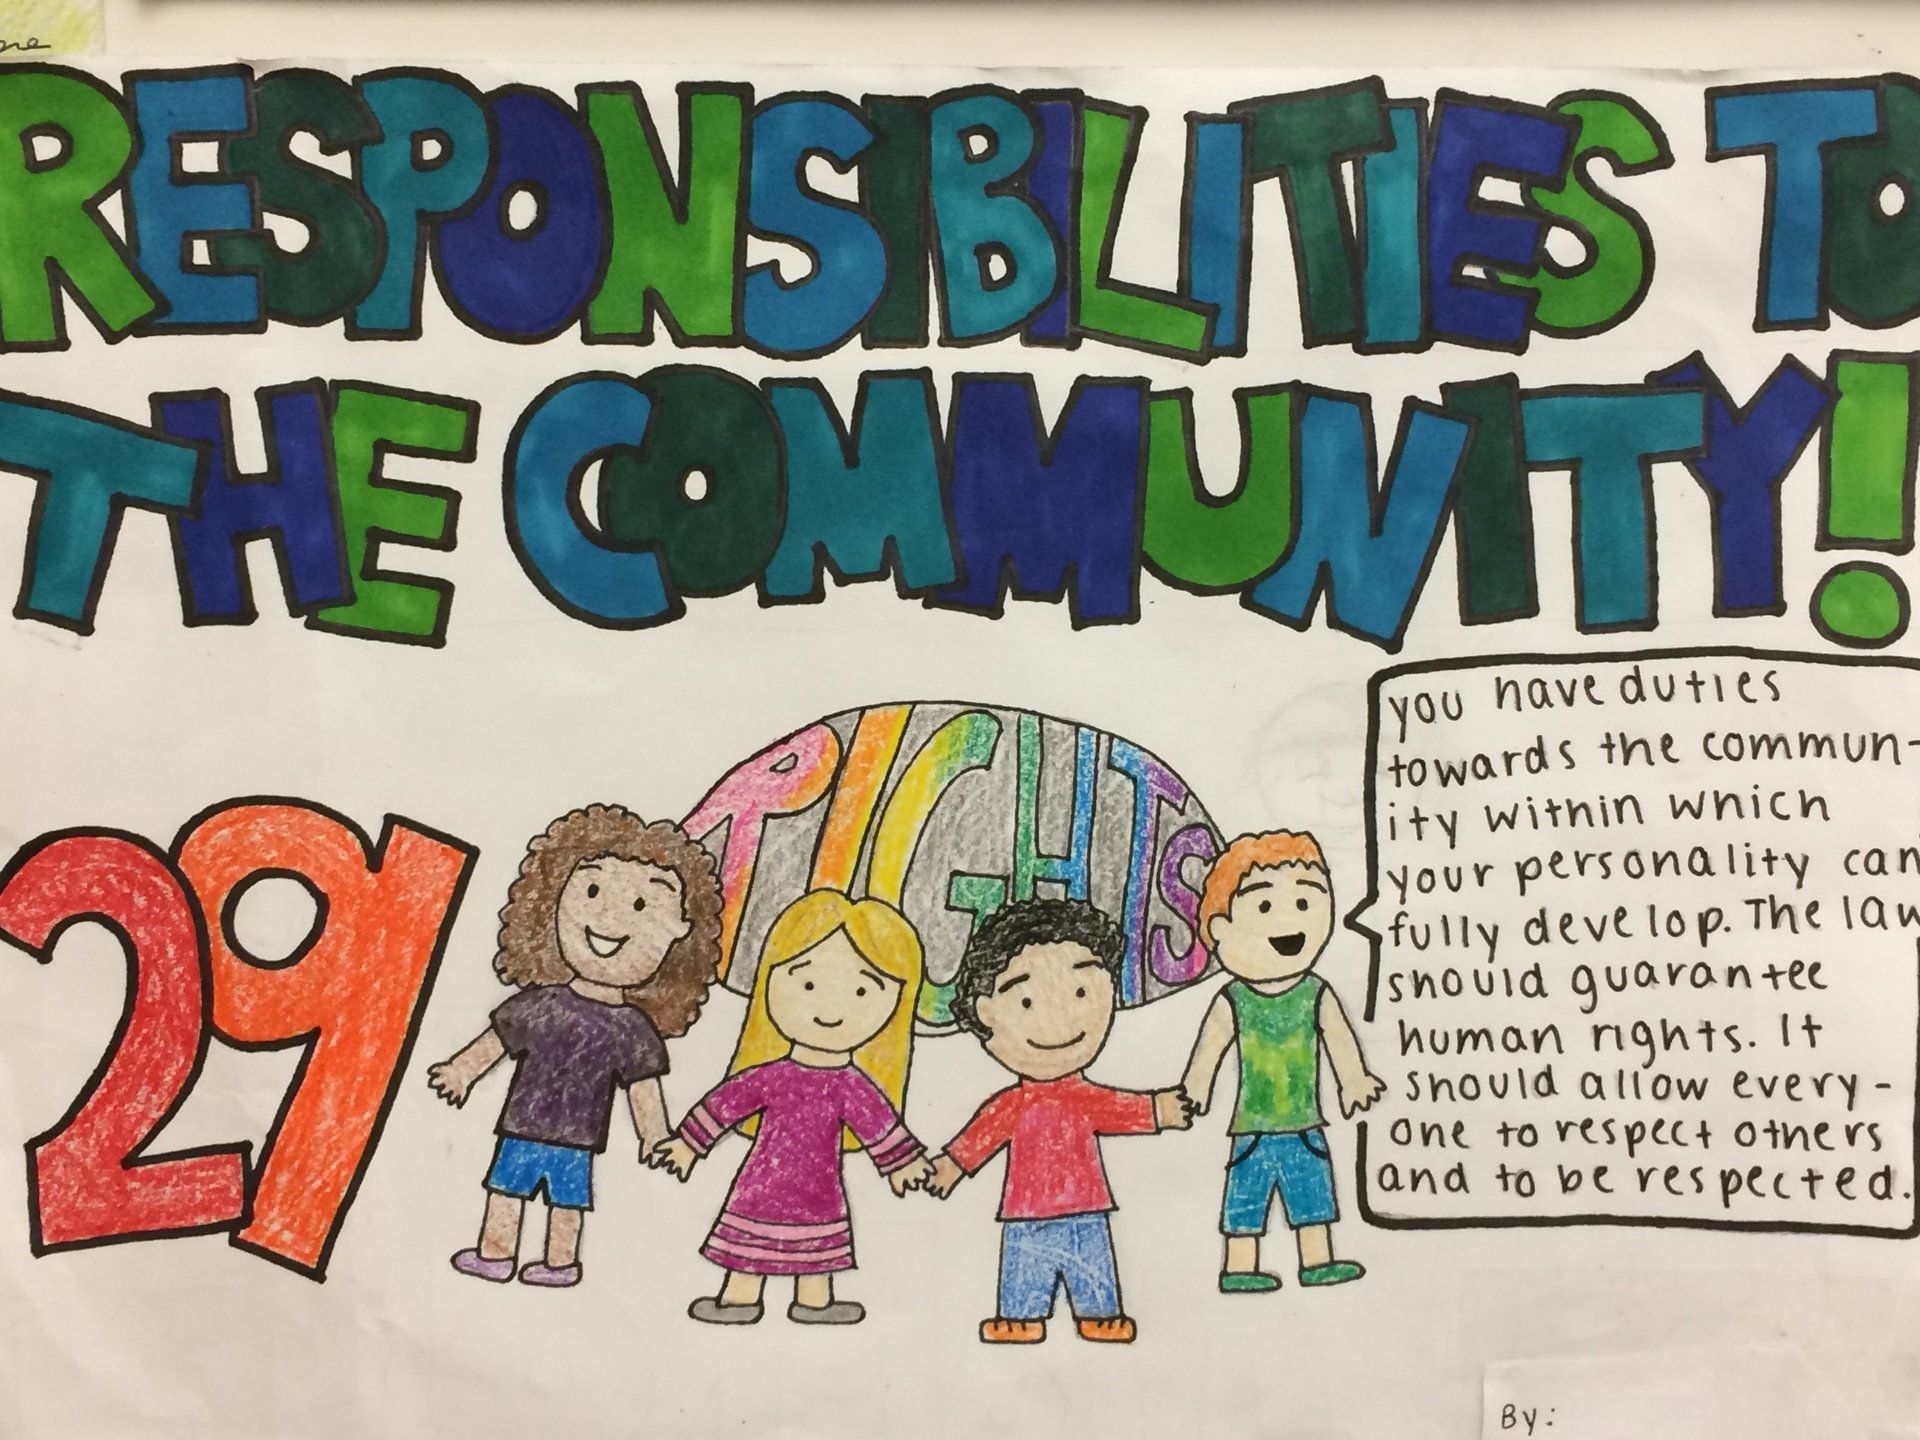 RESPONSIBILITIES TO
THE COMMUNITY!
29
RIGHTS
you have duties
towards the commun-
ity within which
your personality can
fully develop. The law
should guarantee
human rights. It
should allow every-
one to respect others
and to be respected.
By: